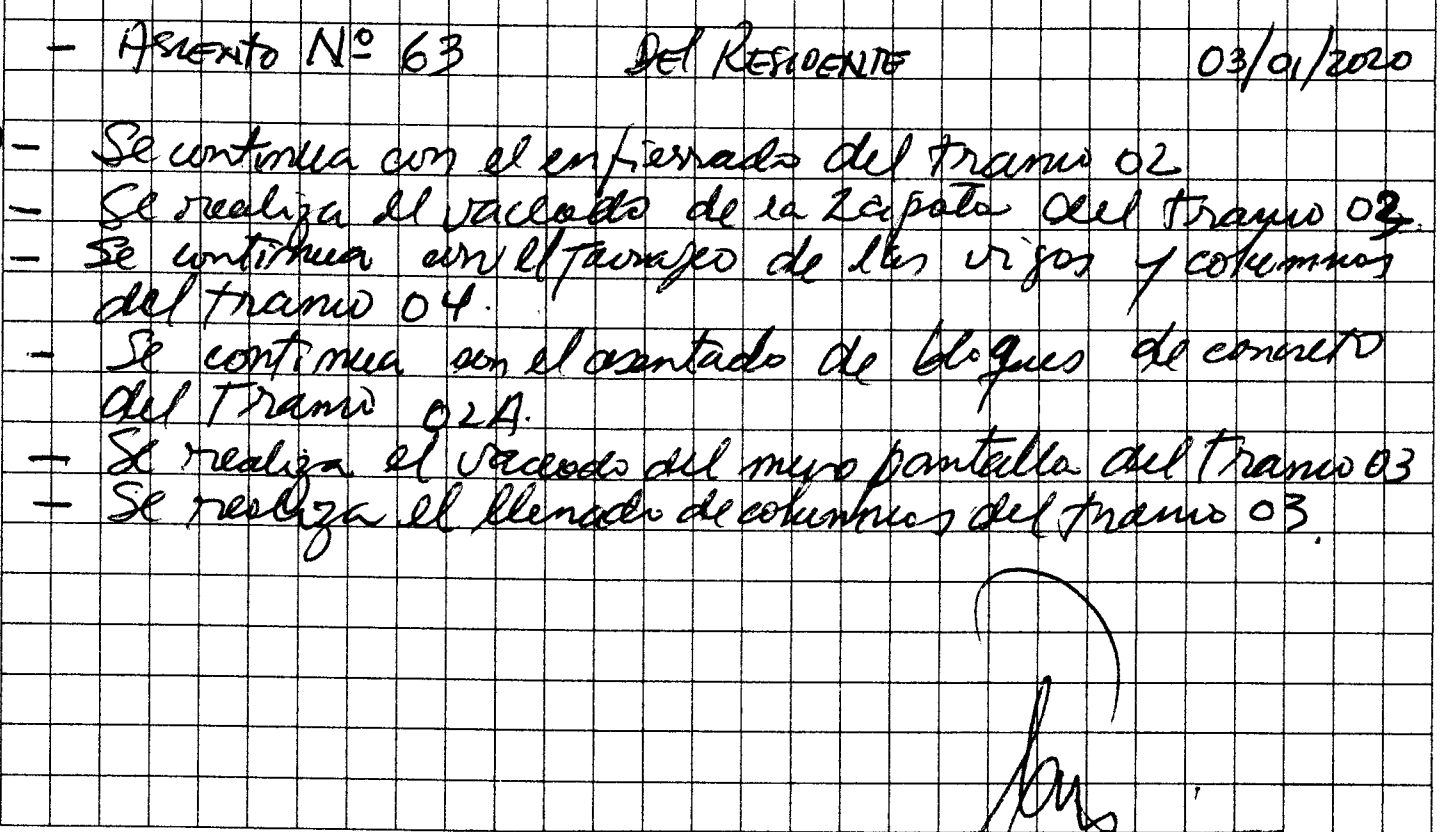 - Asiento Nº 63 Del Residente 03/01/2020
- Se continua con el enfierrado del tramo 02
- Se realiza el vaceado de la Zapata del tramo 02.
- Se continua con el tarrajeo de las vigas y columnas
del tramo 04.
- Se continua con el asentado de bloques de concreto
del Tramo 02A.
- Se realiza el vaceado del muro pantalla del Tramo 03
- Se realiza el llenado de columnas del tramo 03.